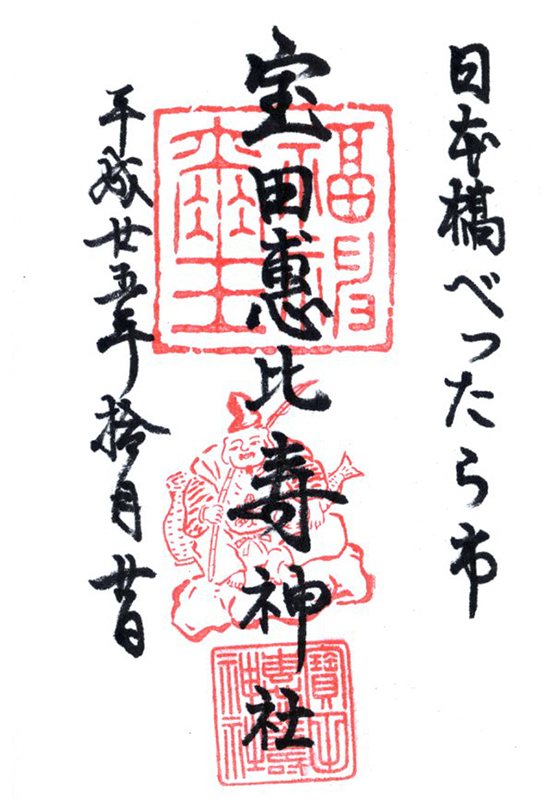 日本橋べったら市
宝田恵比寿神社
平成廿五年拾月廿日